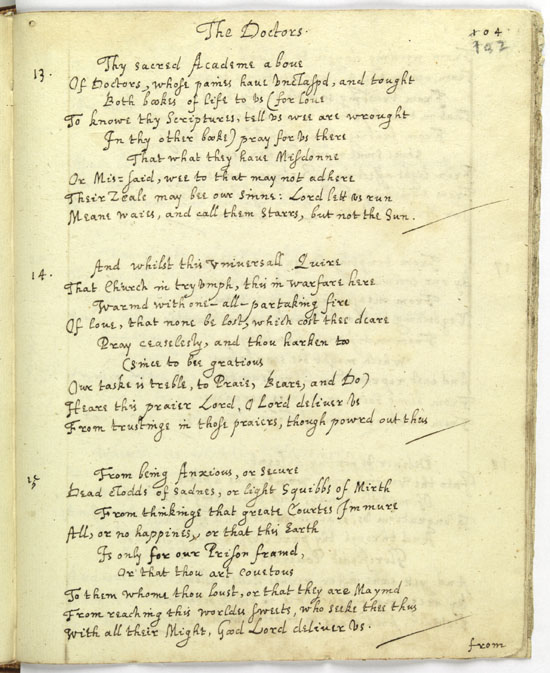 The Doctors.
104
102
13. Thy sacred Academe aboue
Of Doctors, whose paines haue vnclaspd, and tought
Both bookes of life to vs (for loue
To knowe thy Scriptures, tell vs wee are wrought
In thy other booke) pray for vs there
That what they haue Misdonne
Or Miss-said, wee to that may not adhere
Their Zeale may bee our sinne: Lord lett vs run
Meane waies, and call them starrs, but not the Sun.
14. And whilst this vniuersall Quire
That Church in tryvmph, this in warfare here
Warmd with one-all-partaking fire
Of loue, that none be lost, which cost thee deare
Pray ceaselesly, and thou harken to
(Since to bee gratious
Our taske is treble, to Praie, Beare, and Do)
Heare this praier Lord, O Lord deliuer vs
From trustinge in those praiers, though powrd out thus
15 From being Anxious, or secure
Dead Clodds of sadnes, or light Squibbs of Mirth
From thinkings that greate Courtes Immure
All, or no happines, or that this Earth
Is only for our Prison framd,
Or that thou art couetous
To them whome thou loust, or that they are Maymd
From reaching this worldes sweets, who seeke thee thus
With all their Might, Good Lord deliuer vs.
from